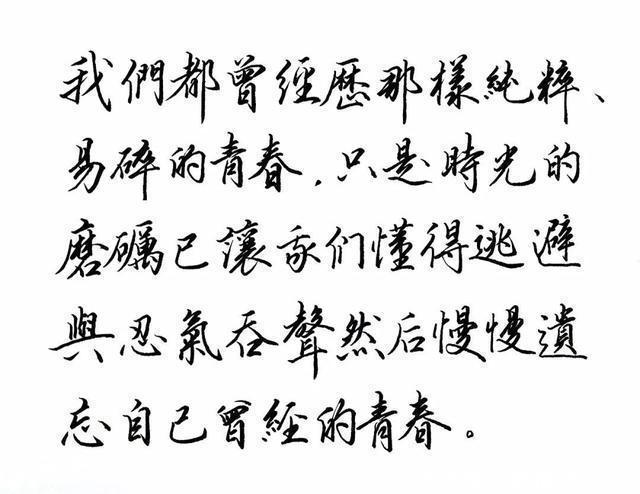 我們都曾經歷那樣純粹、
易碎的青春,只是時光的
磨礪已讓我们懂得逃避
與忍氣吞聲然后慢慢遺
忘自己曾經的青春。